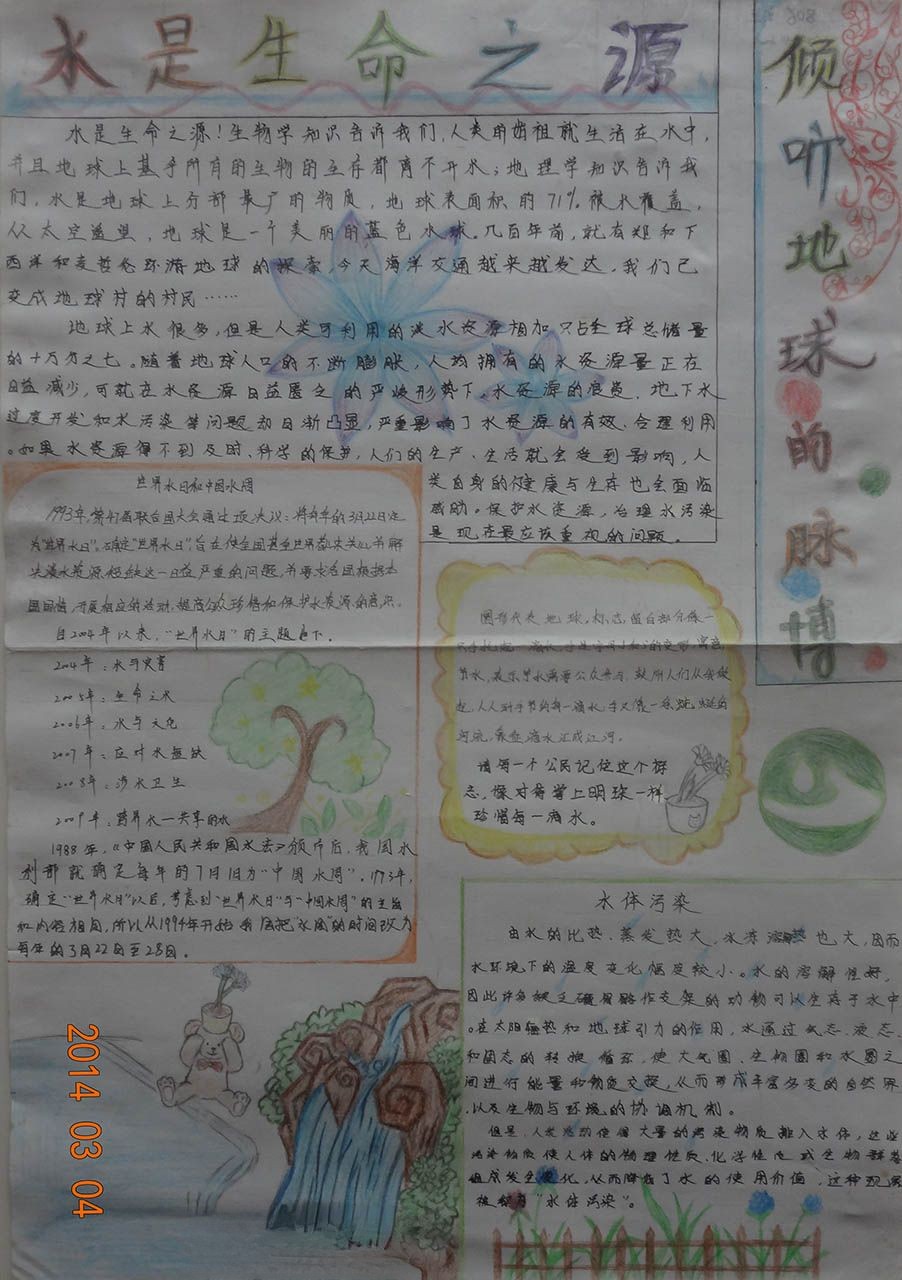 水是生命之源
倾听地球的脉博
水是生命之源！生物学知识告诉我们，人类的始祖就生活在水中，
并且地球上基乎所有的生物的生存都离不开水；地理学知识告诉我
们，水是地球上分部最广的物质，地球表面积的71%被水覆盖，
从太空遥望，地球是一个美丽的蓝色水球。几百年前，就有郑和下
西洋和麦哲伦环游地球的探索，今天海洋交通越来越发达，我们已
变成地球村的村民……
地球上水很多，但是人类可利用的淡水资源相加只占全球总储量
的十万分之七。随着地球人口的不断膨胀，人均拥有的水资源量正在
日益减少，可就在水资源日益匮乏的严峻形势下。水资源的浪费、地下水
过度开发和水污染等问题却日渐凸显，严重影响了水资源的有效、合理利用
。如果水资源得不到及时、科学的保护，人们的生产、生活就会受到影响，人
类自身的健康与生存也会面临
威胁。保护水资源，治理水污染
是现在最应该重视的问题。
世界水日和中国水周
1993年，第47届联合国大会通过一项决议：将每年的3月22日定
为"世界水日"。确定"世界水日"，旨在使全国甚至世界都来关心并解
决淡水资源短缺这一日益严重的问题，并要求各国根据本
国国情，开展相应的活动，提高公众珍惜和保护水资源的意识。
自2004年以来，"世界水日"的主题如下。
2004年：水与灾害
2005年：生命之水
2006年：水与文化
2007年：应对水短缺
2008年：涉水卫生
2009年：跨界水—共享的水
1988年，《中国人民共和国水法》颁布后，我国水
利部就确定每年的7月1日为"中国水周"。1993年，
确定"世界水日"以后，考虑到"世界水日"与"中国水周"的主旨
和内容相同，所以从1994年开始我国把"水周"的时间改为
每年的3月22日至28日。
圆形代表地球，标志留白部分像一
只手托起一滴水，手是字母JS的变形，寓意
节水，表示节水需要公众参与，鼓励人们从我做
起，人人动手节约每一滴水，手又像一条蜿蜒的
河流，象征滴水汇成江河。
请每一个公民记住这个标
志，像对待掌上明珠一样
珍惜每一滴水。
水体污染
由水的比热、蒸发热大，水冻热也大，因而
水环境下的温度变化幅度较小。水的溶解性好，
因此许多缺乏硬骨骼作支架的动物可以生存于水中
。在太阳辐热和地球引力的作用，水通过气态、液态
和固态的转换循环，使大气圈、生物圈和水圈之
间进行能量和物质交换，从而形成丰富多变的自然界
以及生物与环境的协调机制。
但是，人类活动使得大量的污染物质排入水体，这些
污染物质使人体的物理性质、化学性质或生物群落
组成发生变化，从而降低了水的使用价值，这种现象
被称为"水体污染"。
2014 03 04